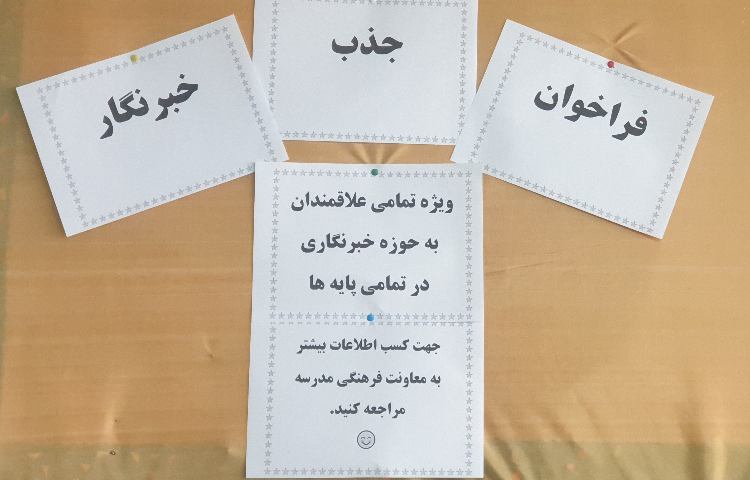 فراخوان
جذب
خبرنگار
ویژه تمامی علاقمندان
به حوزه خبرنگاری
در تمامی پایه ها
جهت کسب اطلاعات بیشتر
به معاونت فرهنگی مدرسه
مراجعه کنید.